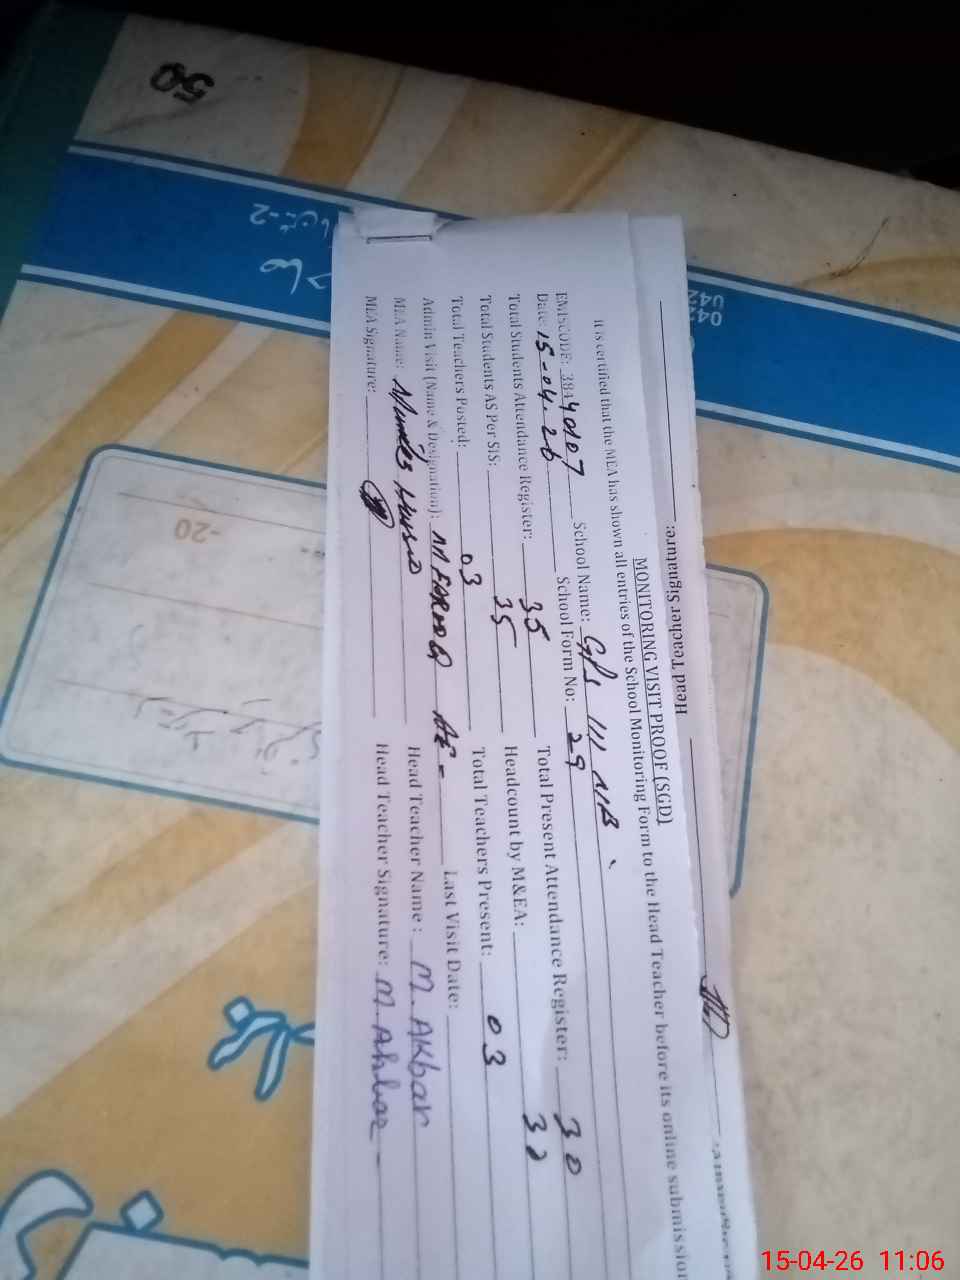 MONITORING VISIT PROOF (SGD)
It is certified that the MEA has shown all entries of the School Monitoring Form to the Head Teacher before its online submission
EMISCODE: 38440107 School Name: GPS 111 NB
Date: 15-04-26 School Form No: 29
Total Students Attendance Register: 35 Total Present Attendance Register: 30
Total Students AS Per SIS: 35 Headcount by M&EA: 30
Total Teachers Posted: 03 Total Teachers Present: 03
Admin Visit (Name & Designation): Last Visit Date:
MEA Name: Head Teacher Name : M. AKbar
MEA Signature: Head Teacher Signature: M. Akbar
Head Teacher Signature:
50
-20
042
15-04-26 11:06